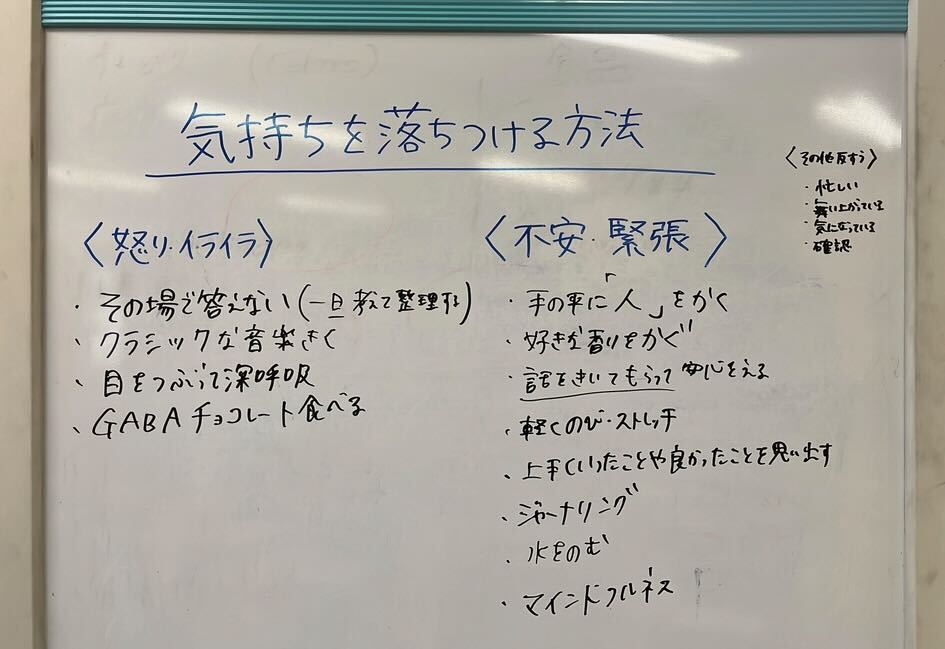 気持ちを落ちつける方法
〈怒り・イライラ〉
・その場で答えない(一旦考えて整理する)
・クラシックな音楽きく
・目をつぶって深呼吸
・GABAチョコレート食べる
〈不安・緊張〉
・手の平に「人」をかく
・好きな香りをかぐ
・話をきいてもらって安心をえる
・軽くのび・ストレッチ
・上手くいったことや良かったことを思い出す
・ジャーナリング
・水をのむ
・マインドフルネス
〈その他反すう〉
・忙しい
・舞い上がっている
・気になっている
・確認